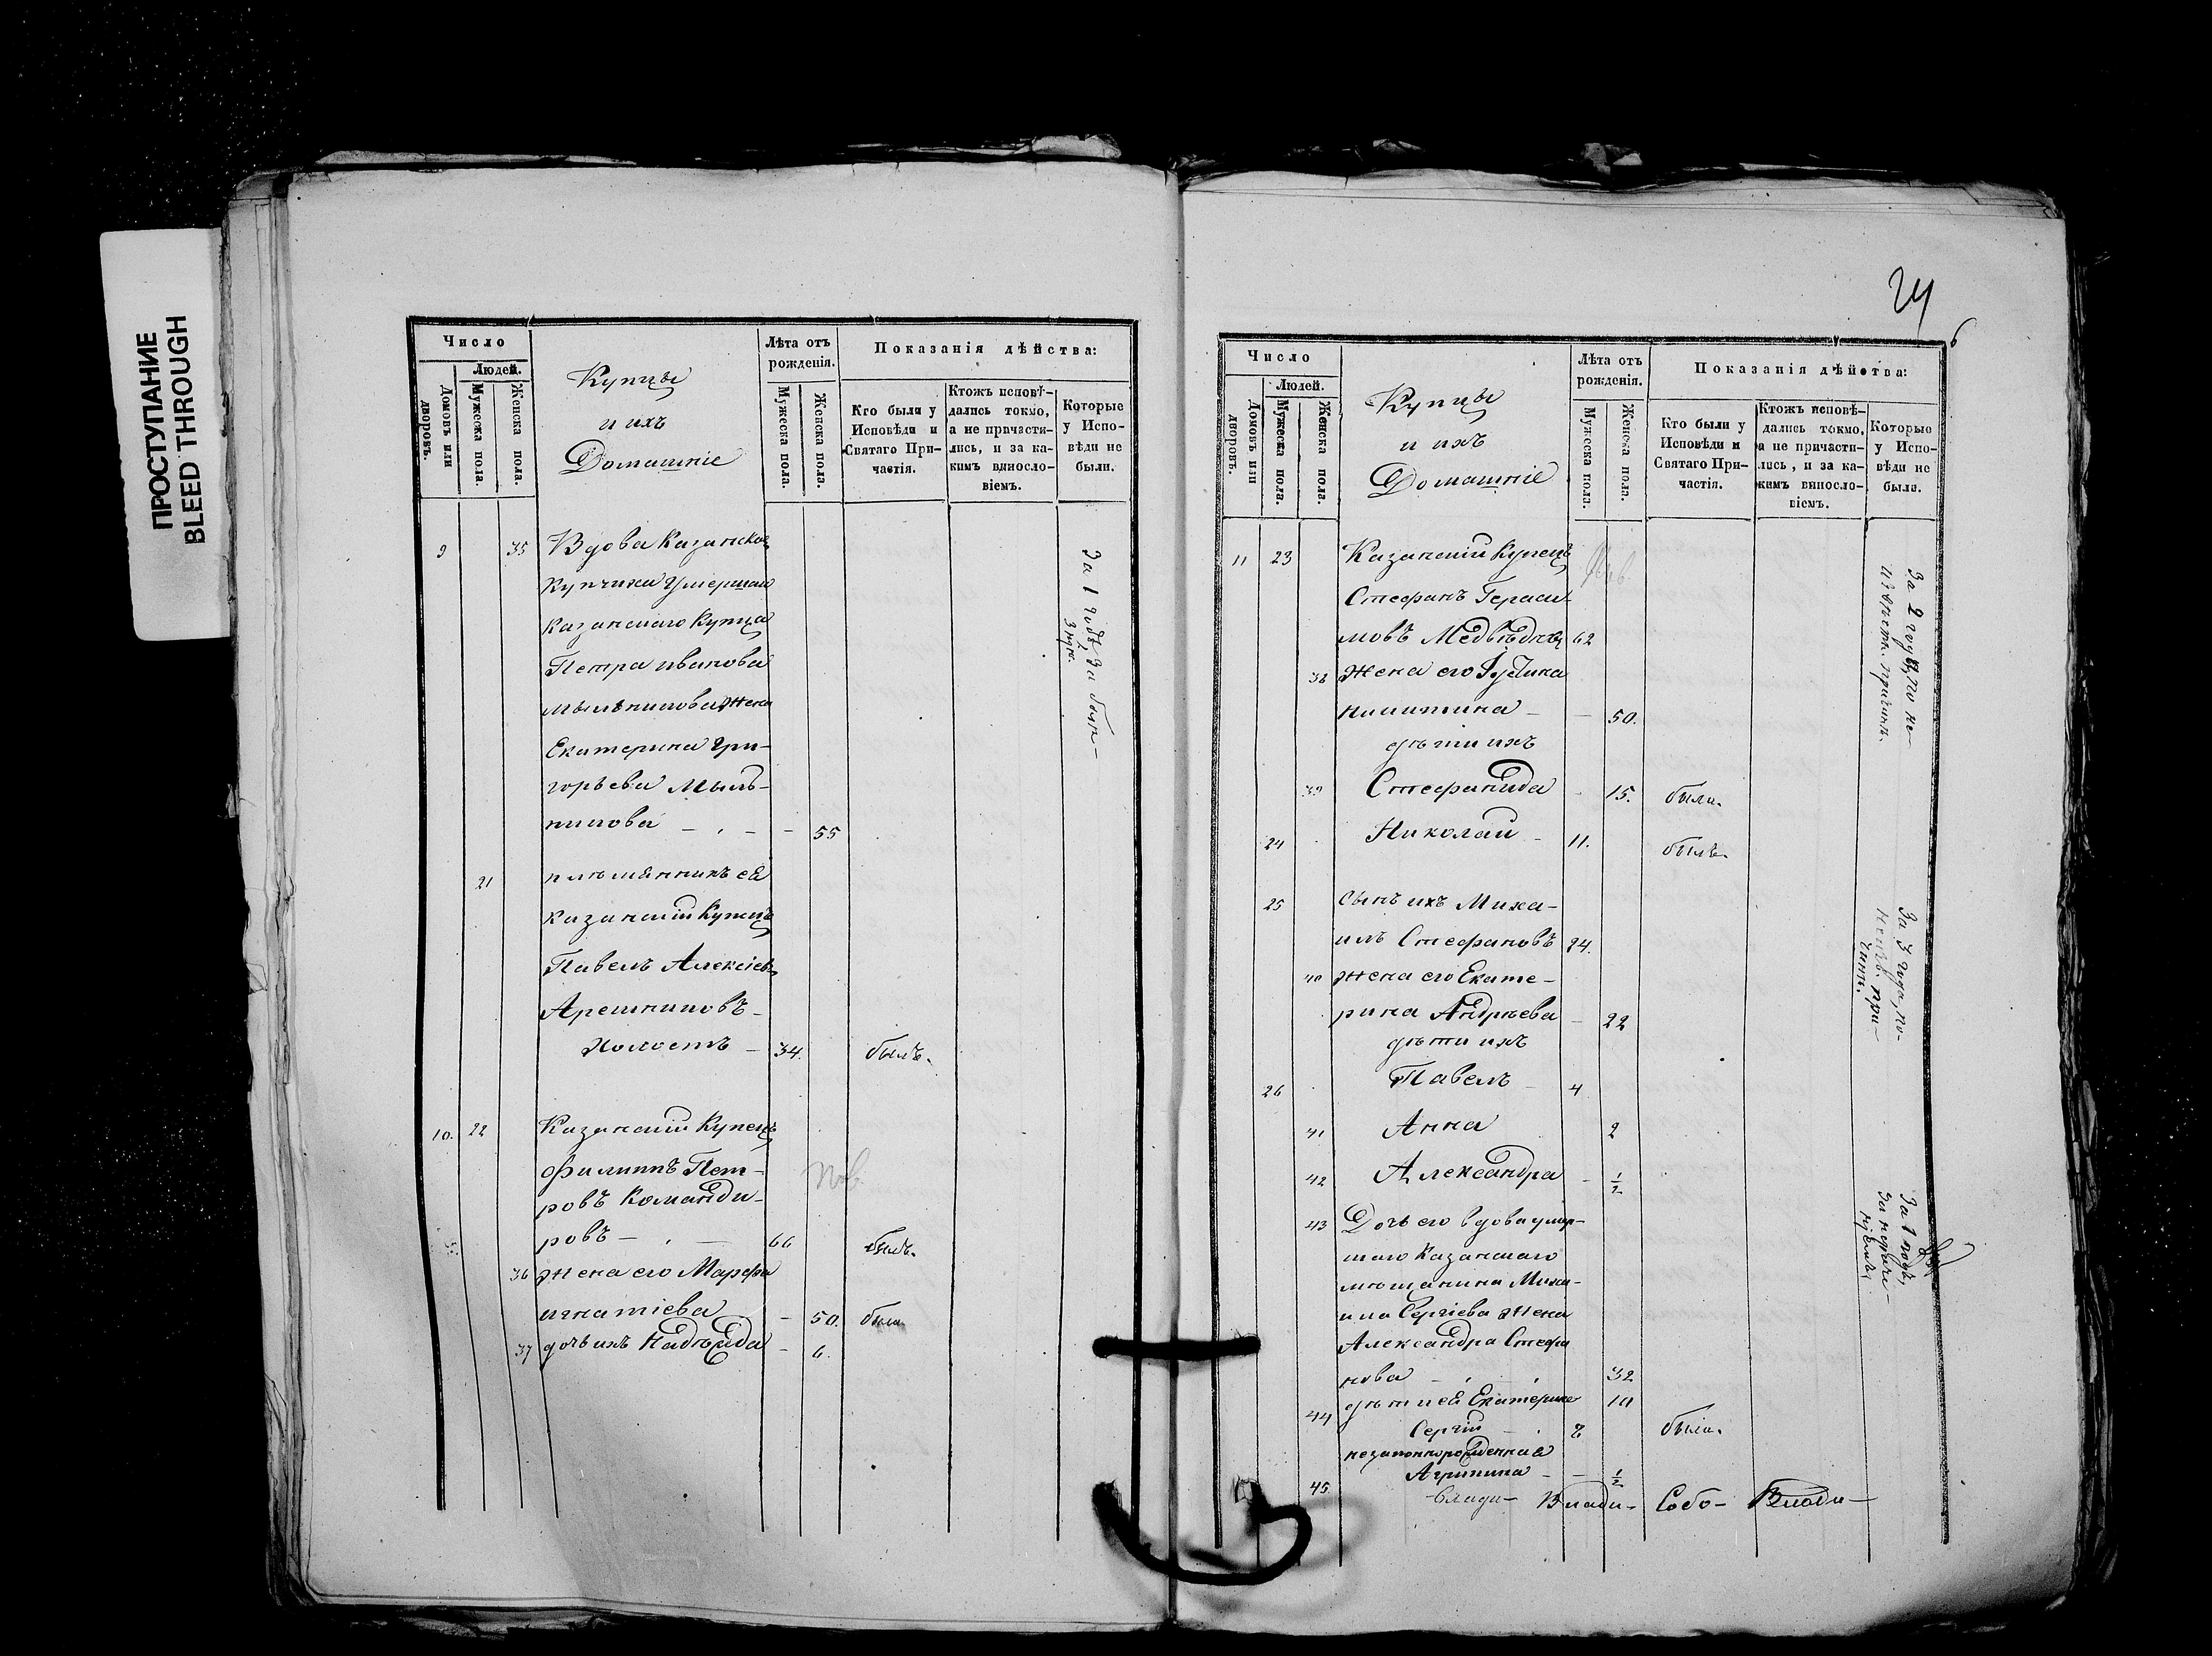 ПРОСТУПАНИЕ
BLEED THROUGH
Число
Людей.
Домовъ или дворовъ.
Мужеска пола.
Женска пола.
Купцы
и ихъ
Домашніе
Лѣта отъ рожденія.
Мужеска пола.
Женска пола.
Показанія дѣйства:
Кто были у Исповѣди и Святаго Причастія.
Ктожъ исповѣдались токмо, а не причастились, и за какимъ винословіемъ.
Которые у Исповѣди не были.
9 35 Вдова Казанская
Купчиха умершаго
Казанскаго Купца
Петра Иванова
Мыльникова Жена
Екатерина Гри-
горьева Мыль-
никова - 55
За 1 годъ, за
21 племянникъ ея
Казанскій Купецъ
Павелъ Алексіевъ
Арешниковъ -
Холостъ - 34. былъ.
10. 22 Казанскій Купецъ
Филиппъ Пет-
ровъ Команди-
ровъ - 66 былъ.
36 Жена его Марфа
Игнатіева - 50. была
37 дочь ихъ Надежда - 6.
24
6
Число
Людей.
Домовъ или дворовъ.
Мужеска пола.
Женска пола.
Купцы
и ихъ
Домашніе
Лѣта отъ рожденія.
Мужеска пола.
Женска пола.
Показанія дѣйства:
Кто были у Исповѣди и Святаго Причастія.
Ктожъ исповѣдались токмо, а не причастились, и за какимъ винословіемъ.
Которые у Исповѣди не были.
11 23 Казанскій Купецъ
Стефанъ Гераси-
мовъ Медвѣдевъ 62
За 2 года, по не-
извѣстн. причинѣ.
38 Жена его
Никитина - - 50.
дѣти ихъ
39 Стефанида - 15. была.
24 Николай - 11. былъ.
25 Сынъ ихъ Миха-
илъ Стефановъ 24.
За 3 года, по
неизв. при-
чинѣ.
40 Жена его Екате-
рина Андреева - 22
дѣти ихъ
26 Павелъ - 4
41 Анна 2
42 Александра - 1/2
43 Дочь его вдова умер-
шаго Казанскаго
мѣщанина Миха-
ила Сергіева Жена
Александра Стефа
нова - 32
За 1 годъ,
44 дѣти ея Екатерина 10
Сергій - была.
незаконнорожденная
45. Агрипина - - 1/2
Влади- Влади- Собо- Влади-